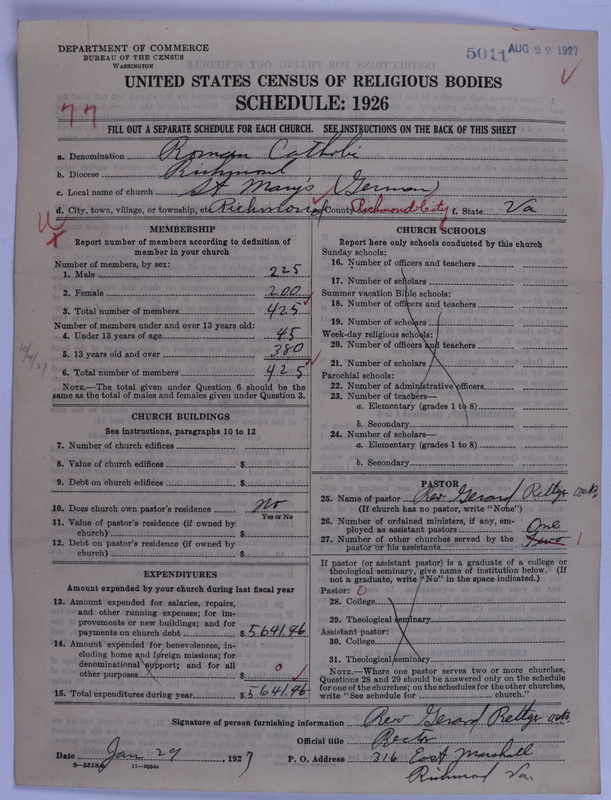 DEPARTMENT OF COMMERCE
BUREAU OF THE CENSUS
WASHINGTON
5011 AUG 22 1927
UNITED STATES CENSUS OF RELIGIOUS BODIES
SCHEDULE: 1926
77
FILL OUT A SEPARATE SCHEDULE FOR EACH CHURCH. SEE INSTRUCTIONS ON THE BACK OF THIS SHEET
a. Denomination Roman Catholic
b. Diocese Richmond
c. Local name of church St Mary's (German)
d. City, town, village, or township, etc. Richmond County Richmond City f. State Va
MEMBERSHIP
Report number of members according to definition of
member in your church
Number of members, by sex:
1. Male 225
2. Female 200
3. Total number of members 425
Number of members under and over 13 years old:
4. Under 13 years of age 45
5. 13 years old and over 380
6. Total number of members 425
NOTE.—The total given under Question 6 should be
same as the total of males and females given under Question 3.
10/14/27
CHURCH BUILDINGS
See instructions, paragraphs 10 to 12
7. Number of church edifices
8. Value of church edifices $
9. Debt on church edifices $
10. Does church own pastor's residence No
Yes or No
11. Value of pastor's residence (if owned by
church) $
12. Debt on pastor's residence (if owned by
church) $
EXPENDITURES
Amount expended by your church during last fiscal year
13. Amount expended for salaries, repairs,
and other running expenses; for im-
provements or new buildings; and for
payments on church debt $5,641.46
14. Amount expended for benevolences, in-
cluding home and foreign missions; for
denominational support; and for all
other purposes $ 0
15. Total expenditures during year $5,641.46
CHURCH SCHOOLS
Report here only schools conducted by this church
Sunday schools:
16. Number of officers and teachers
17. Number of scholars
Summer vacation Bible schools:
18. Number of officers and teachers
19. Number of scholars
Week-day religious schools:
20. Number of officers and teachers
21. Number of scholars
Parochial schools:
22. Number of administrative officers
23. Number of teachers—
a. Elementary (grades 1 to 8)
b. Secondary
24. Number of scholars—
a. Elementary (grades 1 to 8)
b. Secondary
PASTOR
25. Name of pastor Rev Gerard Rettger OSB
(If church has no pastor, write "None")
26. Number of ordained ministers, if any, em-
ployed as assistant pastors One
27. Number of other churches served by the
pastor or his assistants Two 1
If pastor (or assistant pastor) is a graduate of a college or
theological seminary, give name of institution below. (If
not a graduate, write "No" in the space indicated.)
Pastor: 0
28. College
29. Theological seminary
Assistant pastor:
30. College
31. Theological seminary
NOTE.—Where one pastor serves two or more churches,
Questions 28 and 29 should be answered only on the schedule
for one of the churches; on the schedules for the other churches,
write "See schedule for church."
Signature of person furnishing information Rev Gerard Rettger OSB
Official title Rector
Date Jan 29, 1927 P. O. Address 316 East Marshall
Richmond Va.